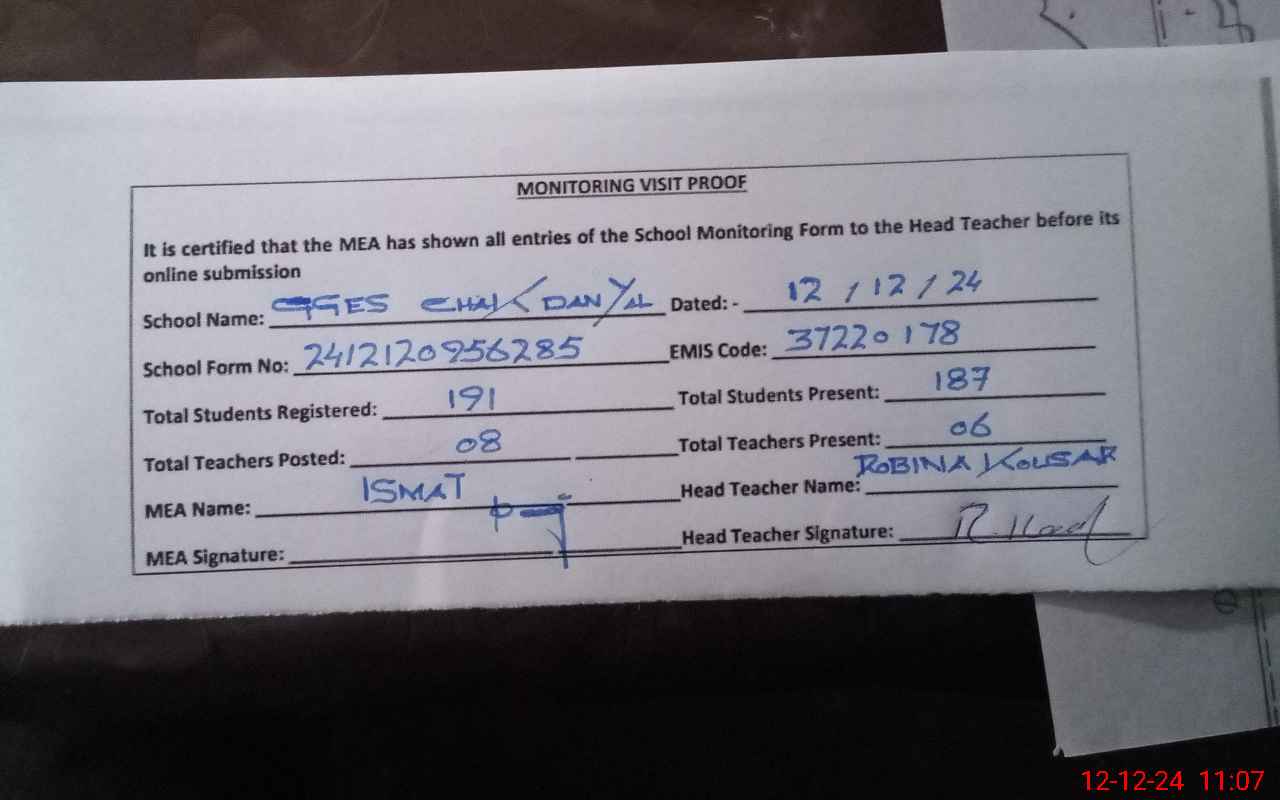 MONITORING VISIT PROOF
It is certified that the MEA has shown all entries of the School Monitoring Form to the Head Teacher before its
online submission
School Name: GGES CHAK DANYAL Dated: - 12 / 12 / 24
School Form No: 2412120956285 EMIS Code: 37220178
Total Students Registered: 191 Total Students Present: 187
Total Teachers Posted: 08 Total Teachers Present: 06
MEA Name: ISMAT Head Teacher Name: ROBINA KOUSAR
MEA Signature: Head Teacher Signature:
12-12-24 11:07